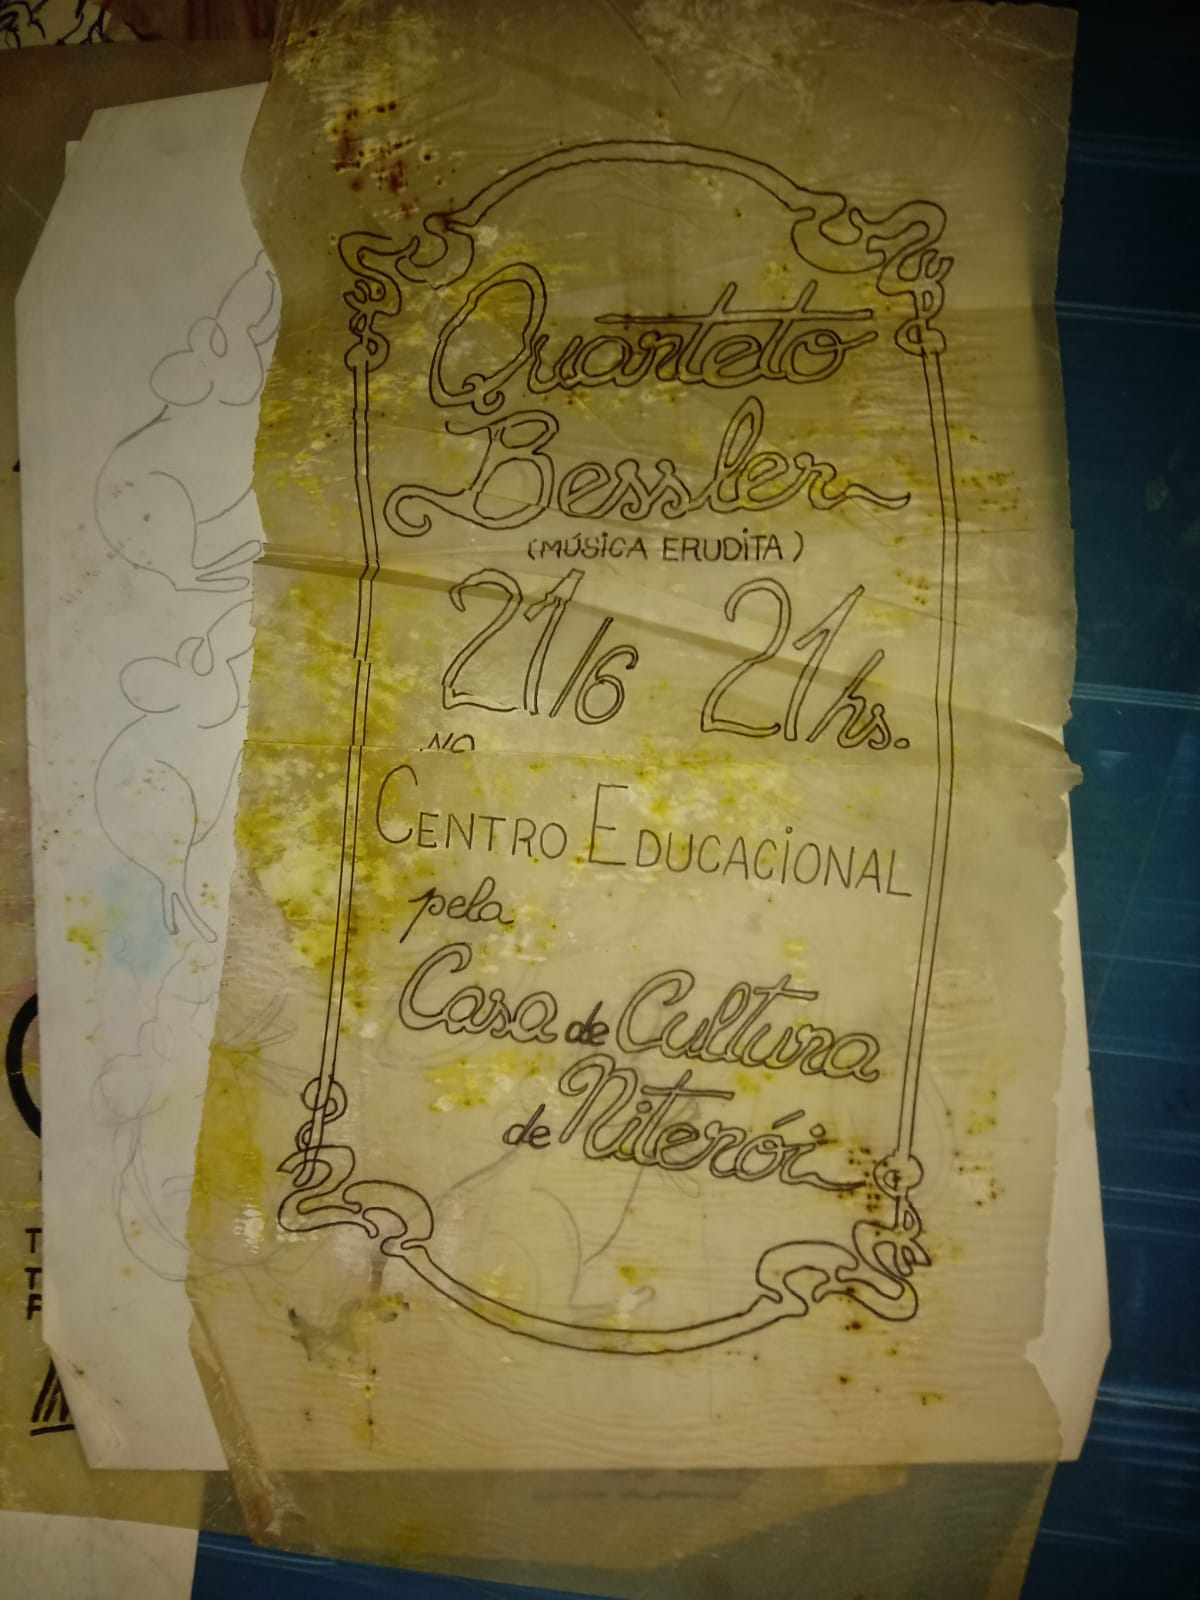 Quarteto
Bessler
(MÚSiCA ERUDiTA)
21/6 21hs.
NO
CENTRO EDUCACiONAL
pela
Casa de Cultura
de Niterói
T
T
F